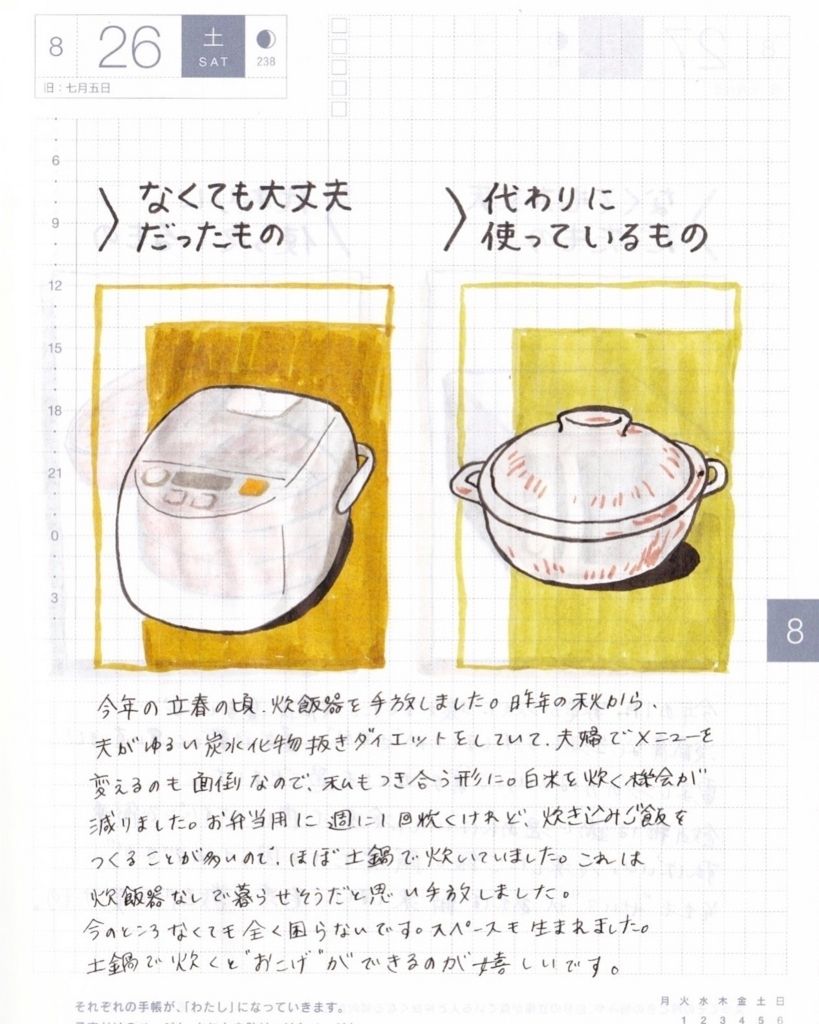 8 26 土 SAT 238
旧:七月五日
なくても大丈夫
だったもの
代わりに
使っているもの
6
9
12
15
18
21
0
3
8
今年の立春の頃、炊飯器を手放しました。昨年の秋から、
夫がゆるい炭水化物抜きダイエットをしていて、夫婦でメニューを
変えるのも面倒なので、私もつき合う形に。白米を炊く機会が
減りました。お弁当用に週に1回炊くけれど、炊き込みご飯を
つくることが多いので、ほぼ土鍋で炊いていました。これは
炊飯器なしで暮らせそうだと思い手放しました。
今のところなくても全く困らないです。スペースも生まれました。
土鍋で炊くと"おこげ"ができるのが嬉しいです。
それぞれの手帳が、「わたし」になっていきます。
月 火 水 木 金 土 日
1 2 3 4 5 6